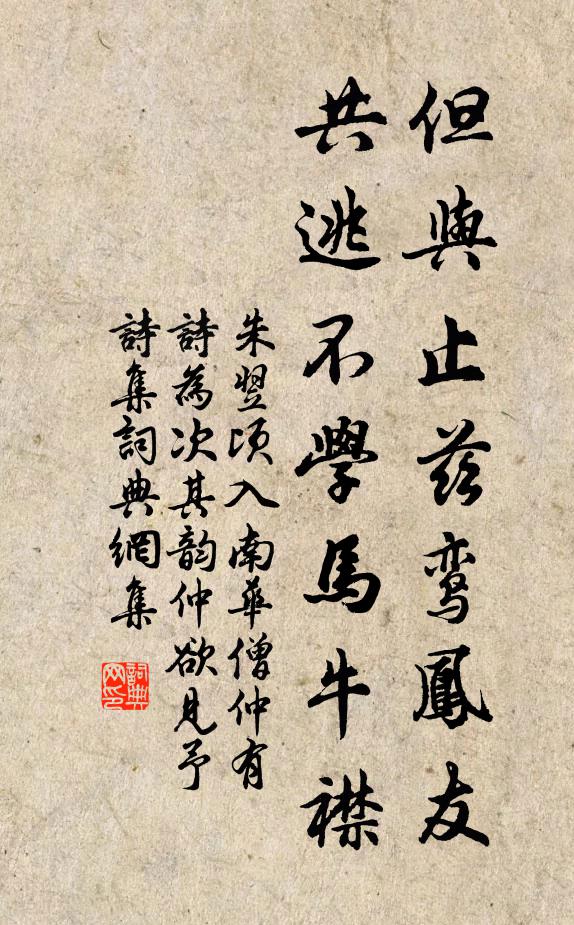 但與止茲鸾鳳友
共逃不學馬牛襟
朱翌頃入南華僧仲有
詩為次其韵仲欲見予
詩集詞典網集
詞典网印